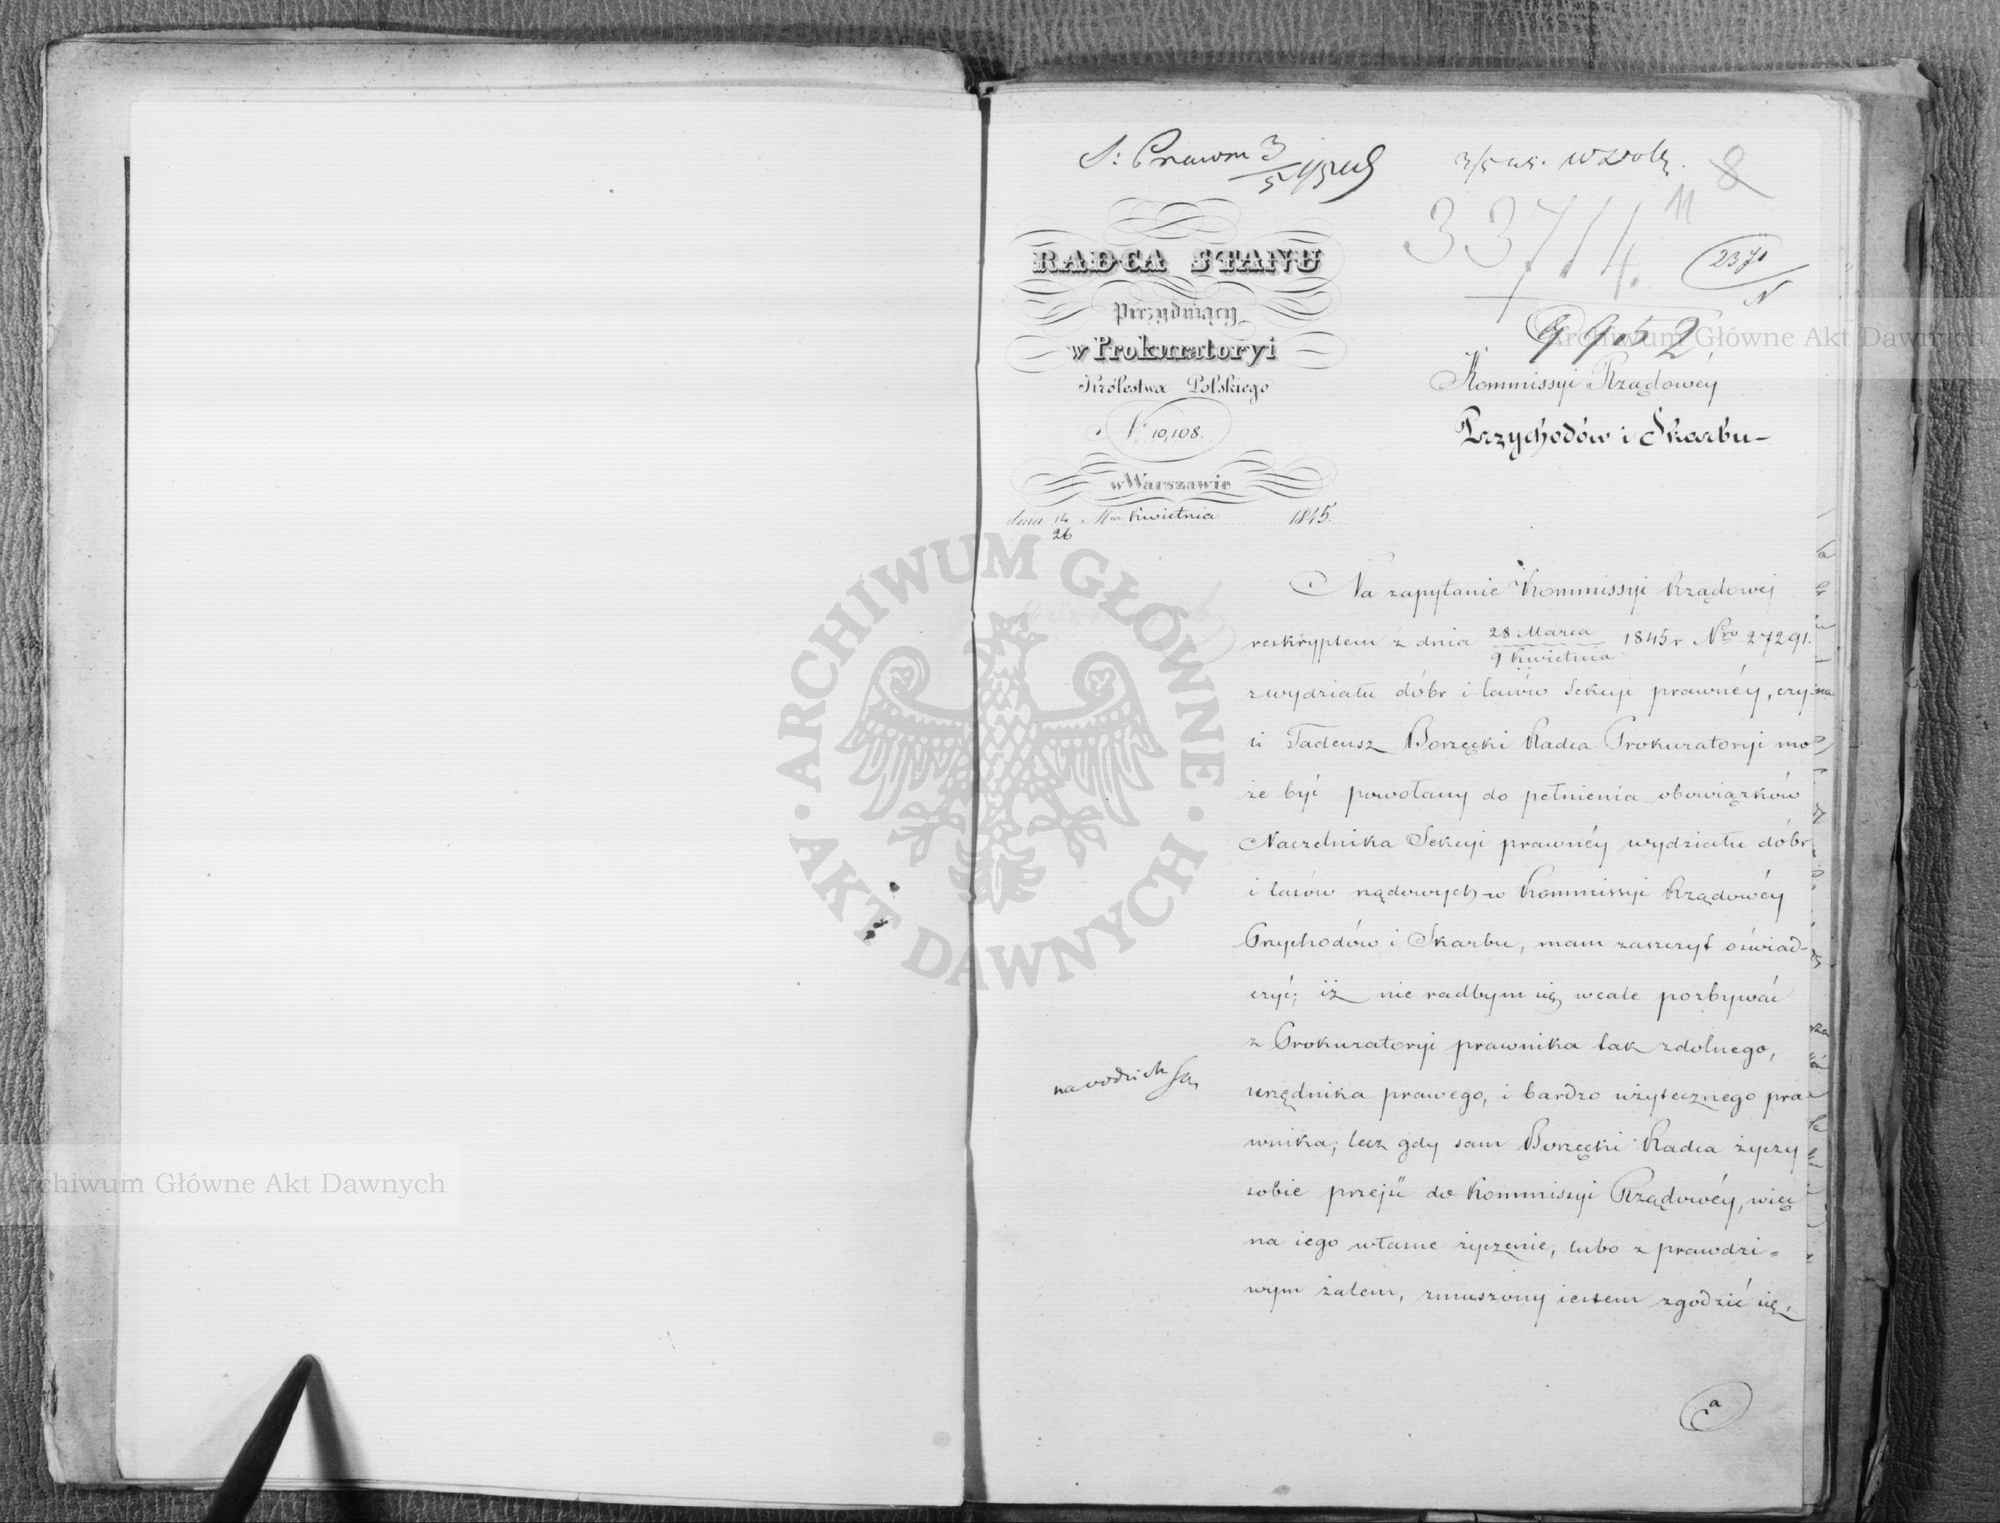 3/5 45.
8
11
33714.
2371
N
9952
RADCA STANU
Prezyduiący
w Prokuratoryi
Królestwa Polskiego
N° 10,108.
w Warszawie
dnia 14/26 Mca Kwietnia 1845.
Kommissyi Rządowéy
Przychodów i Skarbu
Na zapytanie Kommissyi Rządowej
reskryptem z dnia 28 Marca / 9 Kwietnia 1845 r Nro 27291.
z wydziału dóbr i lasów Sekcyi prawnéy, czy-
li Tadeusz Borzęcki Radca Prokuratoryi mo
że być powołany do pełnienia obowiązków
Naczelnika Sekcyi prawnéy wydziału dóbr
i lasów rządowych w Kommissyi Rządowéy
Przychodów i Skarbu, mam zaszczyt oświad-
czyć; iż nie radbym się wcale pozbywać
z Prokuratoryi prawnika tak zdolnego,
urzędnika prawego, i bardzo użytecznego pra
wnika; lecz gdy sam Borzęcki Radca życzy
sobie przejść do Kommissyi Rządowéy, więc
na iego własne życzenie, lubo z prawdzi=
wym żalem, zmuszony iestem zgodzić się,
a
ARCHIWUM GŁÓWNE AKT DAWNYCH
Archiwum Główne Akt Dawnych
Archiwum Główne Akt Dawnych